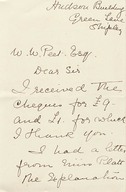 Hudson Building
Green Lane
Shipley
W. W. Peet. Esq.
Dear Sir
I received the
cheques for £9-
and £4 for which
I thank you
I had a letter
from Miss
the Explanation